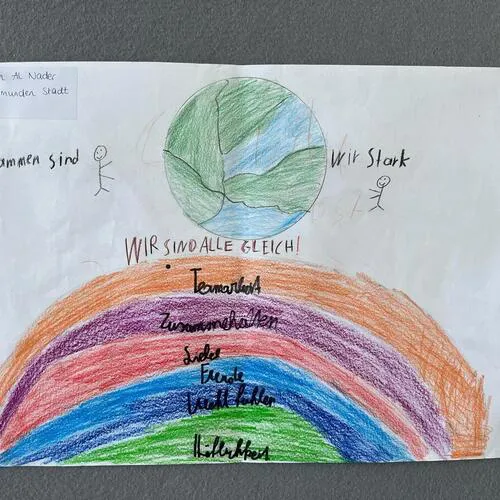 Al Nader
munden Stadt
ammen sind
Wir Stark
WIR SIND ALLE GLEICH!
Temarbeit
Zusammehalten
Liebe
Freude
Höflichkeit